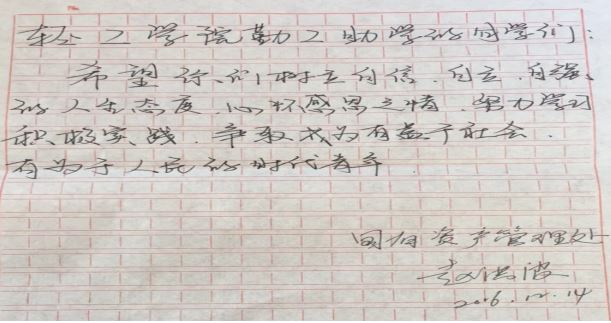 轻工学院勤工助学的同学们：
希望你们树立自信、自立、自强、
的人生态度，心怀感恩之情，努力学习
积极实践，争取成为有益于社会、
有为于人民的时代青年
国有资产管理处
洪波
2016.12.14